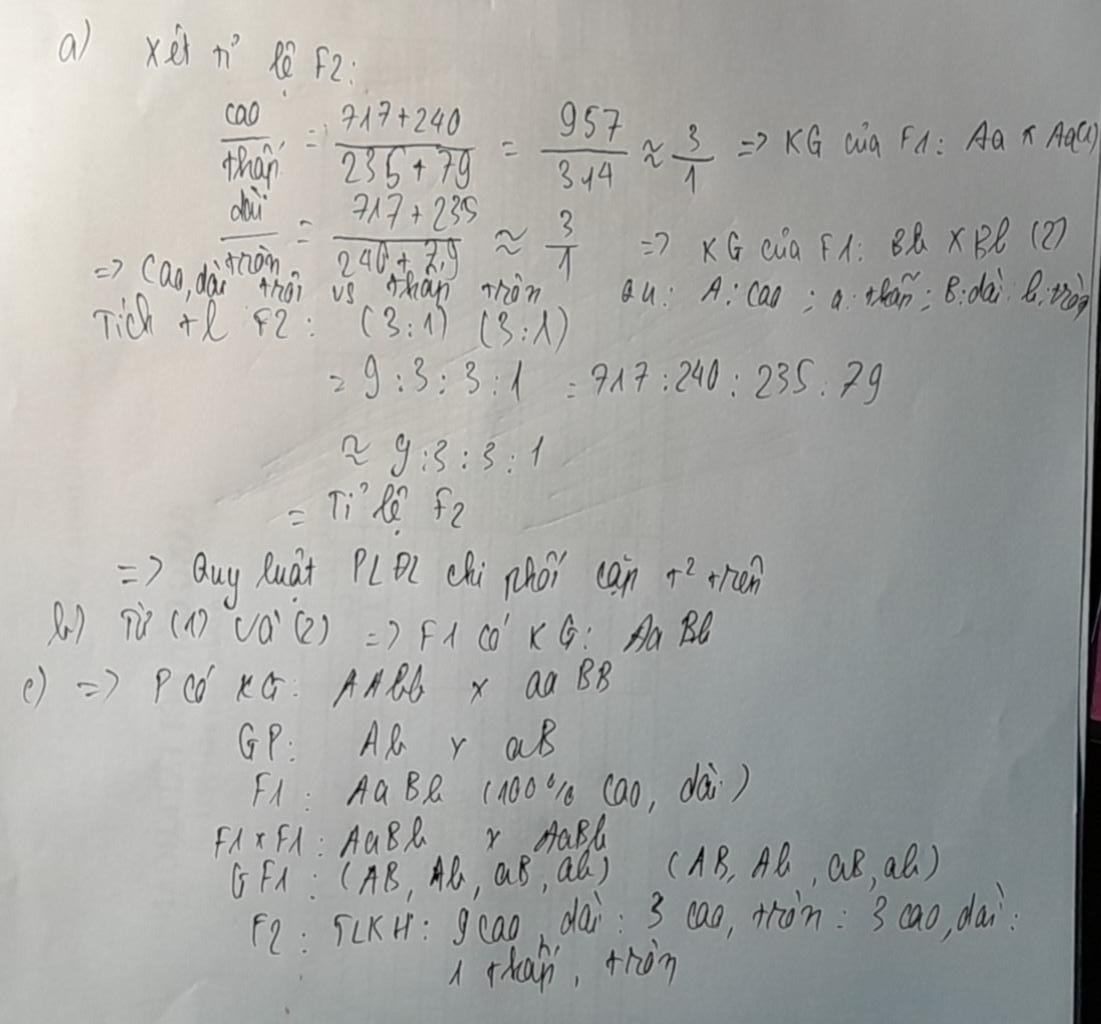 a) Xét tỉ lệ F2:
cao/thấp = 717+240/235+79 = 957/314 ≈ 3/1 => KG của F1: Aa x Aa(1)
dài/tròn = 717+235/240+79 ≈ 3/1 => KG của F1: Bb x Bb (2)
=> Cao, dài trội vs thấp tròn QU: A: cao ; a: thấp ; B: dài. b: tròn
Tích tl F2: (3:1) (3:1)
= 9:3:3:1 = 717:240:235:79
≈ 9:3:3:1
= Tỉ lệ F2
=> Quy luật PLĐL chi phối cặp t² trên
b) Từ (1) và (2) => F1 có KG: AaBb
c) => P có KG: AAbb x aaBB
GP: Ab x aB
F1: AaBb (100% cao, dài)
F1xF1: AaBb x AaBb
GF1: (AB, Ab, aB, ab) (AB, Ab, aB, ab)
F2: TLKH: 9 cao, dài: 3 cao, tròn: 3 cao, dài:
1 thấp, tròn